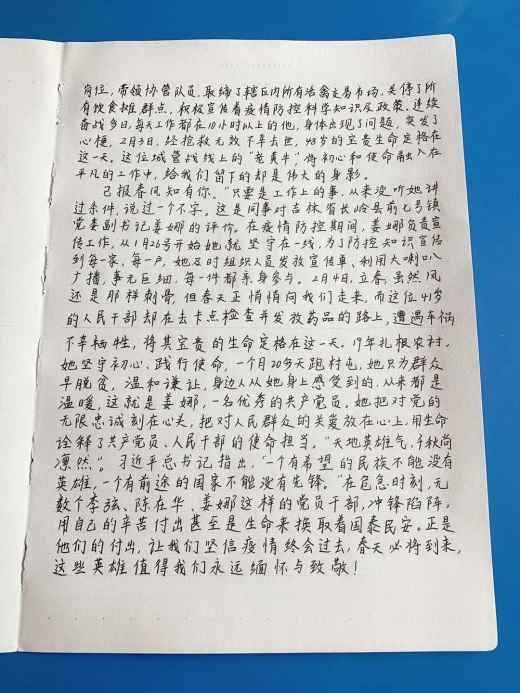 岗位，带领协管队员，取缔了辖区内所有活禽交易市场，关停了所
有饮食摊群点，积极宣传着疫情防控科学知识及政策。连续
奋战多日，每天工作都在10小时以上的他，身体出现了问题，突发了
心梗，2月3日，经抢救无效不幸去世，48岁的宝贵生命定格在
这一天。这位城管战线上的“老黄牛”，将初心和使命融入在
平凡的工作中，给我们留下的却是伟大的身影。
已报春风知有你。“只要是工作上的事，从来没听她讲
过条件，说过一个不字。这是同事对吉林省长岭县前七号镇
党委副书记姜娜的评价。在疫情防控期间，姜娜负责宣
传工作，从1月26号开始她就坚守在一线，为了防控知识宣传
到每一家、每一户，她及时组织人员发放宣传单、利用大喇叭
广播，事无巨细，每一件都亲身参与。2月4日，立春，虽然风
还是那样刺骨，但春天正悄悄向我们走来，而这位41岁
的人民干部却在去卡点检查并发放药品的路上，遭遇车祸
不幸牺牲，将其宝贵的生命定格在这一天。19年扎根农村，
她坚守初心、践行使命，一个月20多天跑村屯，她只为群众
早脱贫，温和谦让，身边人从她身上感受到的，从来都是
温暖，这就是姜娜，一名优秀的共产党员。她把对党的
无限忠诚刻在心头，把对人民群众的关爱放在心上，用生命
诠释了共产党员、人民干部的使命担当。“天地英雄气，千秋尚
凛然”。习近平总书记指出，“一个有希望的民族不能没有
英雄，一个有前途的国家不能没有先锋。”在危急时刻，无
数个李弦、陈在华、姜娜这样的党员干部，冲锋陷阵，
用自己的辛苦付出甚至是生命来换取着国泰民安。正是
他们的付出，让我们坚信疫情终会过去，春天必将到来，
这些英雄值得我们永远缅怀与致敬！